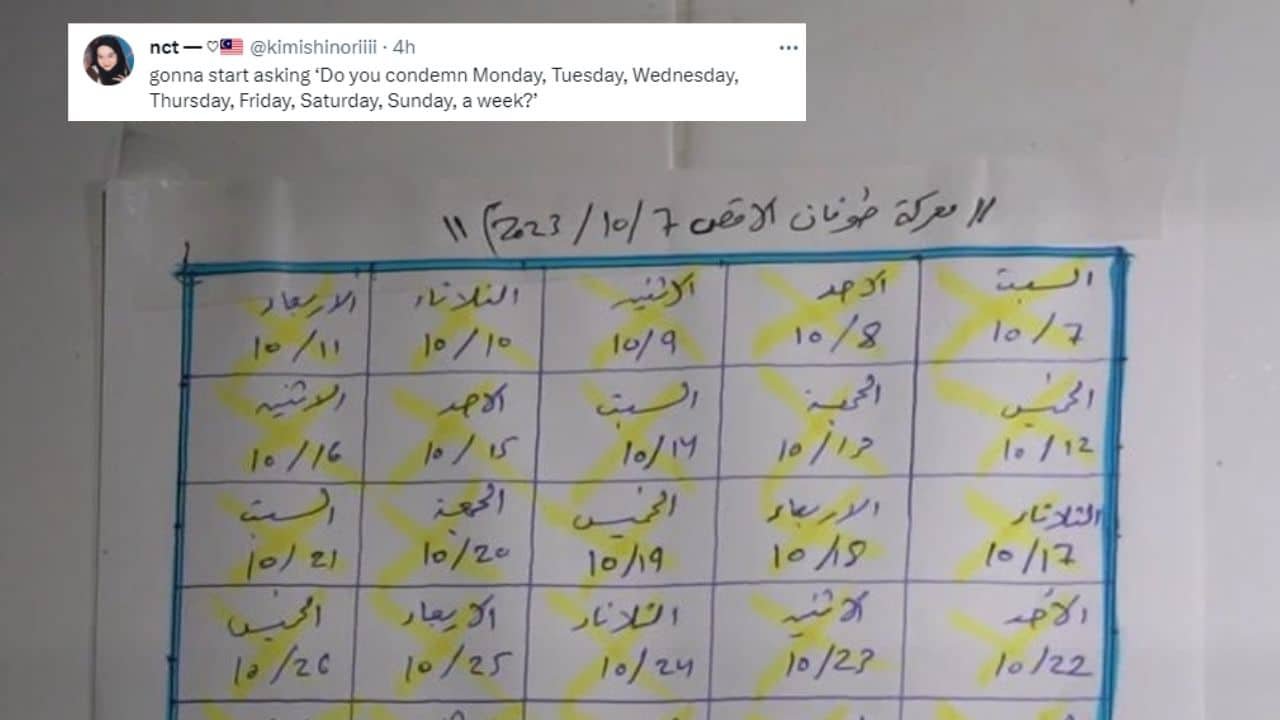 nct — ♡🇲🇾 @kimishinoriiii · 4h
gonna start asking ‘Do you condemn Monday, Tuesday, Wednesday,
Thursday, Friday, Saturday, Sunday, a week?’
// معركة طوفان الاقصى 7/10/2023م //
السبت الاحد الاثنين الثلاثاء الاربعاء
10/7 10/8 10/9 10/10 10/11
الخميس الجمعة السبت الاحد الاثنين
10/12 10/13 10/14 10/15 10/16
الثلاثاء الاربعاء الخميس الجمعة السبت
10/17 10/18 10/19 10/20 10/21
الأحد الاثنين الثلاثاء الاربعاء الخميس
10/22 10/23 10/24 10/25 10/26